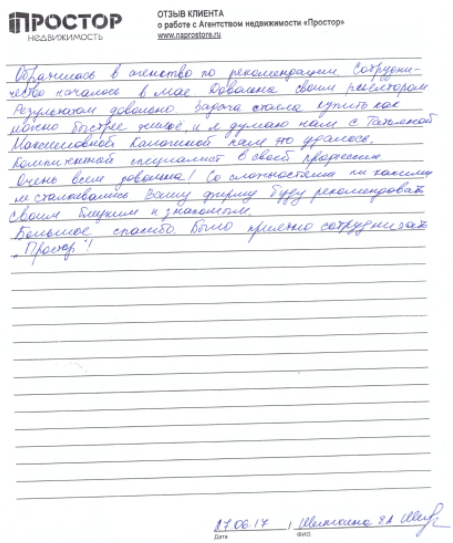 ПРОСТОР
НЕДВИЖИМОСТЬ
ОТЗЫВ КЛИЕНТА
о работе с Агентством недвижимости «Простор»
www.naprostore.ru
Обратилась в агенство по рекомендации. Сотрудни-
чество началось в мае. Довольна своим риелтором
Результатом довольна. Задача стояла купить как
можно быстрее жильё, и я думаю нам с Татьяной
Максимовной нам это удалось.
Компетентный специалист в своей профессии
Очень всем довольна! Со сложностями ни какими
не сталкивались Вашу фирму буду рекомендовать
своим близким и знакомым.
Большое спасибо Было приятно сотрудничать
"Простор"!
27.06.17
Дата
ФИО